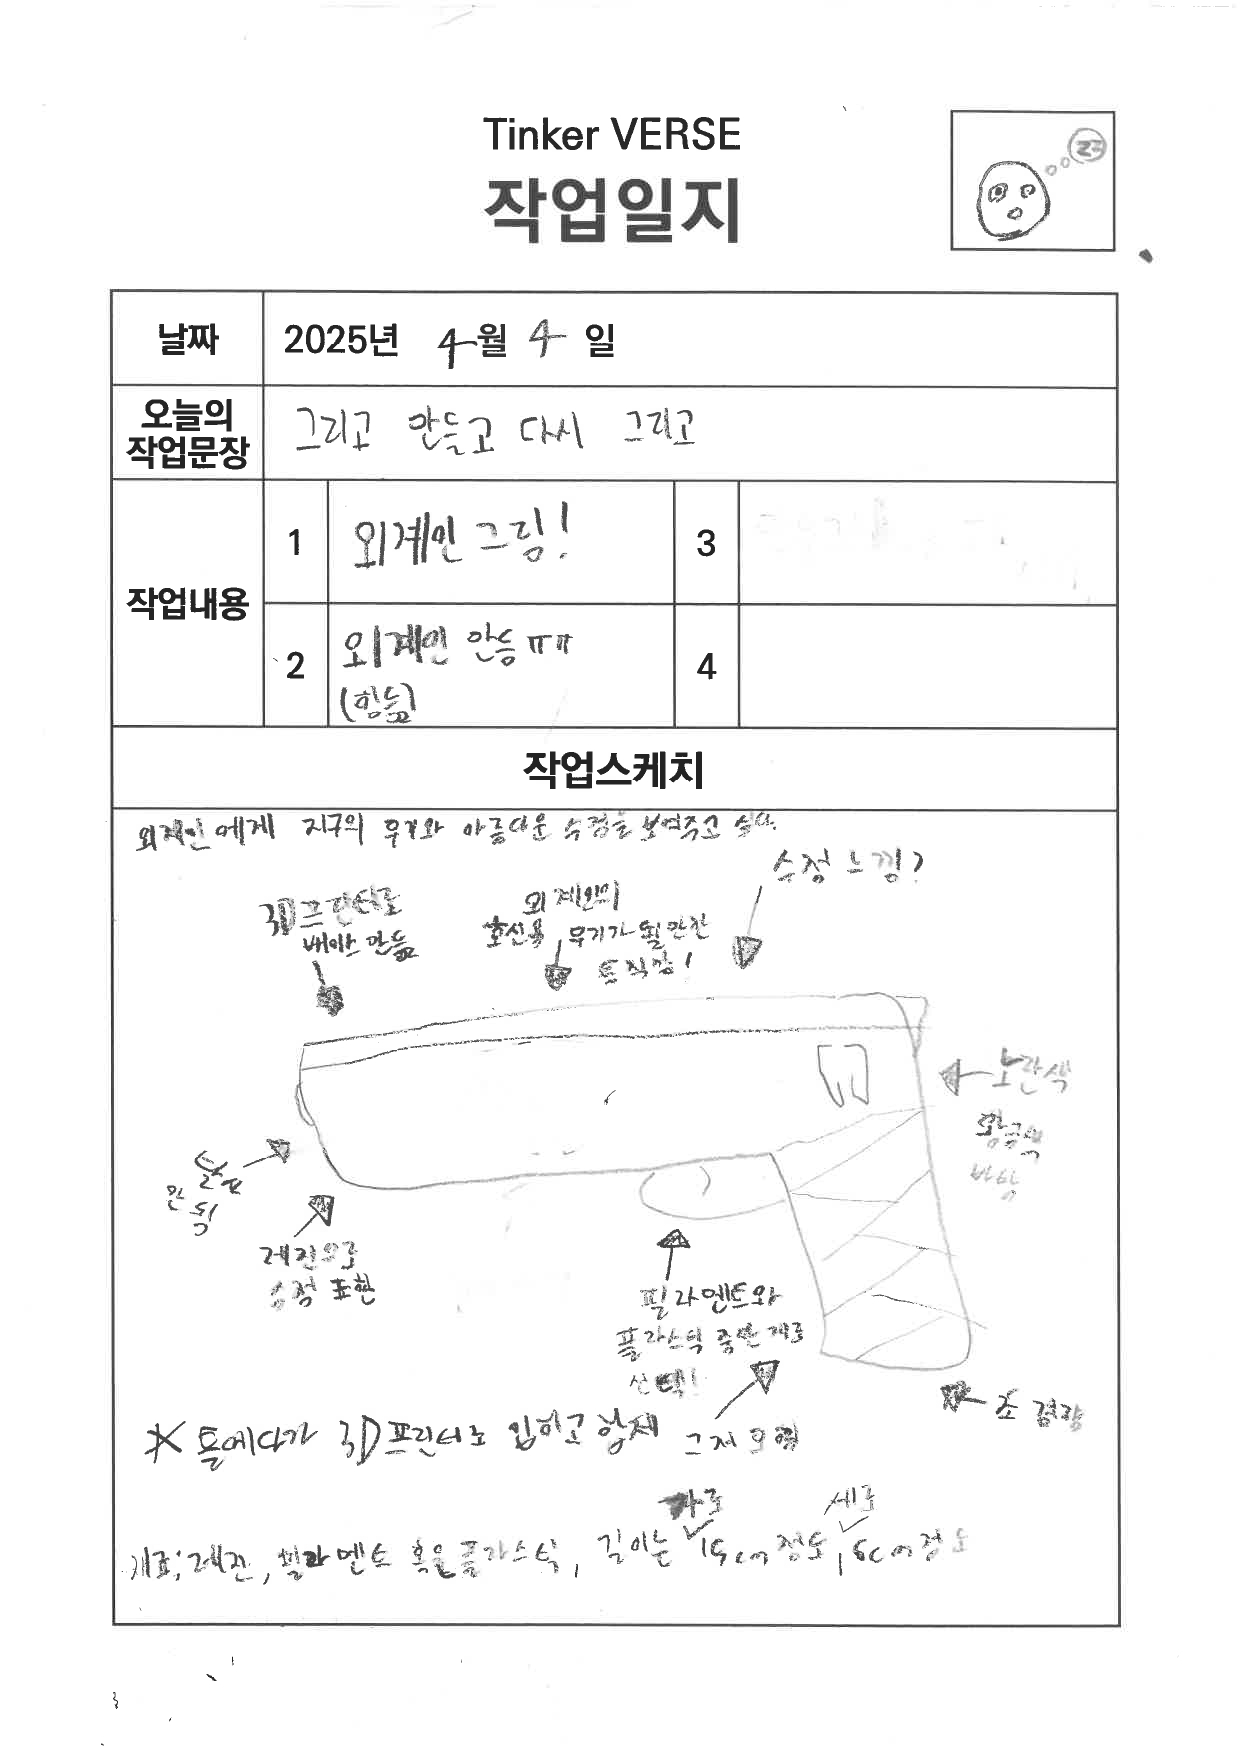 Tinker VERSE
작업일지
zz
날짜
2025년 4월 4일
오늘의
작업문장
그리고 만들고 다시 그리고
작업내용
1
외계인 그림!
3
2
외계인 만듬 ㅠㅠ
(힘듦)
4
작업스케치
외계인에게 지구의 무기와 아름다운 수정을 보여주고 싶다.
수정 느낌?
3D프린터로
베이스 만듦
외계인의
호신용 무기가 될 만한
노란색
황금색
레진으로
수정 표현
필라멘트와
플라스틱 중 한 개로
선택!
초 경량
틀에다가 3D프린터로 입히고
가로
세로
재료; 레진, 필라멘트 혹은 플라스틱, 길이는 15cm 정도, 5cm 정도